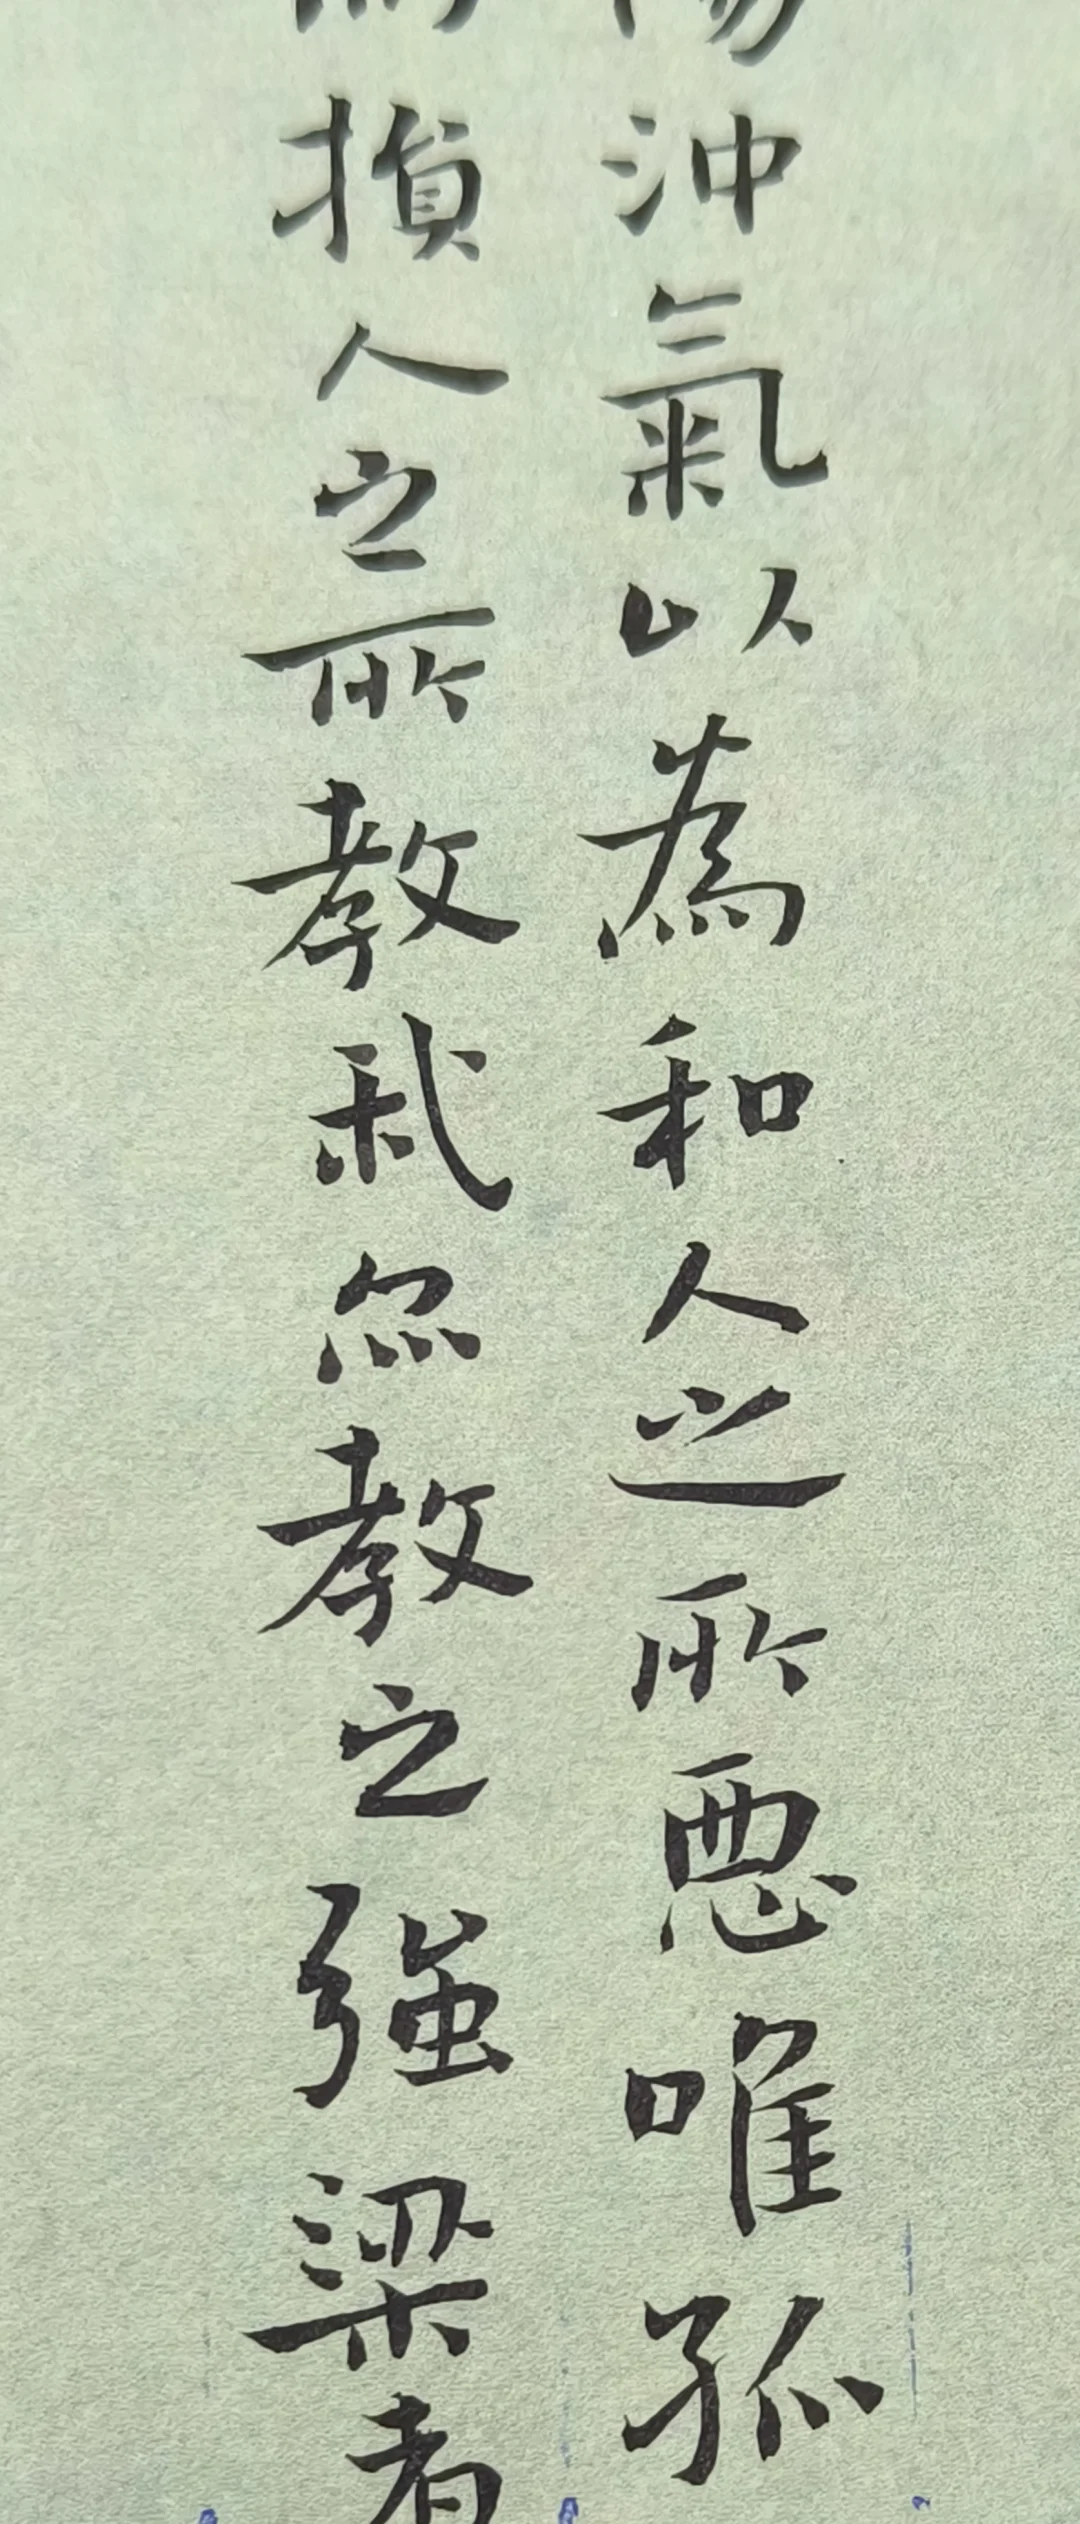 沖氣以為和人之所惡唯孤
損人之所教我亦教之強梁者